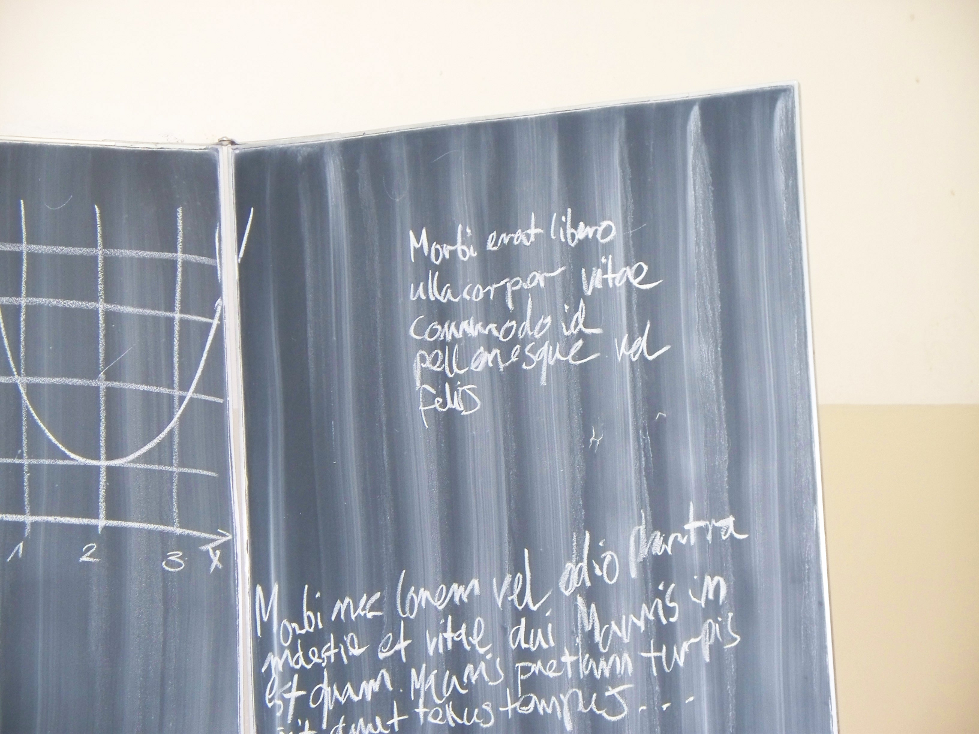 1 2 3 x
Morbi erat libero
ullacorpor vitae
commodo id
pellenesque vel
felis
Morbi nec lorem vel odio pharetra
molestie et vitae dui Mauris in
est quam Mauris pretium turpis
sit amet tellus tempus...